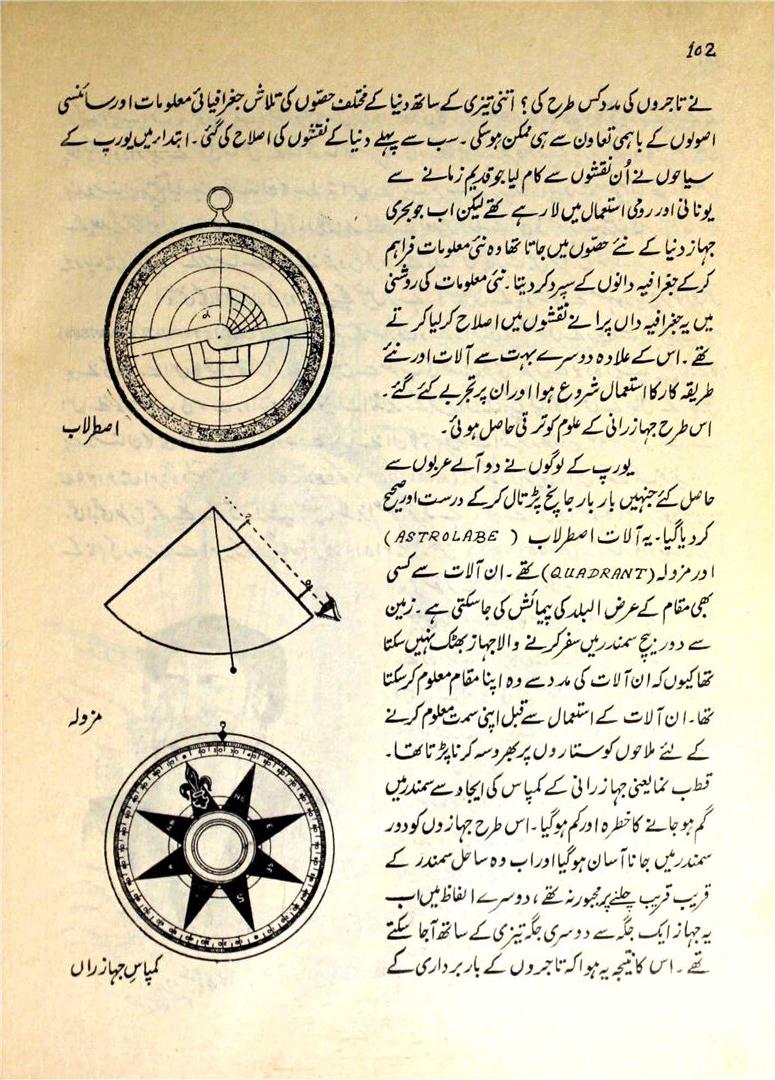 102
نے تاجروں کی مدد کس طرح کی؟ اتنی تیزی کے ساتھ دنیا کے مختلف حصّوں کی تلاش جغرافیائی معلومات اور سائنسی
اصولوں کے باہمی تعاون سے ہی ممکن ہوسکی۔ سب سے پہلے دنیا کے نقشوں کی اصلاح کی گئی۔ ابتدا میں یورپ کے
سیاحوں نے اُن نقشوں سے کام لیا جو قدیم زمانے سے
یونانی اور رومی استعمال میں لا رہے تھے لیکن اب جو بحری
جہاز دنیا کے نئے حصّوں میں جاتا تھا وہ نئی معلومات فراہم
کرکے جغرافیہ دانوں کے سپرد کر دیتا۔ نئی معلومات کی روشنی
میں یہ جغرافیہ داں پرانے نقشوں میں اصلاح کر لیا کرتے
تھے۔ اس کے علاوہ دوسرے بہت سے آلات اور نئے
طریقہ کار کا استعمال شروع ہوا اور ان پر تجربے کئے گئے۔
اس طرح جہاز رانی کے علوم کو ترقی حاصل ہوئی۔
اصطرلاب
یورپ کے لوگوں نے دو آلے عربوں سے
حاصل کئے جنہیں بار بار جانچ پڑتال کرکے درست اور صحیح
کر دیا گیا۔ یہ آلات اصطرلاب (ASTROLABE)
اور مزولہ (QUADRANT) تھے۔ ان آلات سے کسی
بھی مقام کے عرض البلد کی پیمائش کی جاسکتی ہے۔ زمین
سے دور بیچ سمندر میں سفر کرنے والا جہاز بھٹک نہیں سکتا
تھا کیوں کہ ان آلات کی مدد سے وہ اپنا مقام معلوم کر سکتا
تھا۔ ان آلات کے استعمال سے قبل اپنی سمت معلوم کرنے
کے لئے ملاحوں کو ستاروں پر بھروسہ کرنا پڑتا تھا۔
مزولہ
قطب نما یعنی جہاز رانی کے کمپاس کی ایجاد سے سمندر میں
گم ہو جانے کا خطرہ اور کم ہو گیا۔ اس طرح جہازوں کو دور
سمندر میں جانا آسان ہو گیا اور اب وہ ساحل سمندر کے
قریب قریب چلنے پر مجبور نہ تھے، دوسرے الفاظ میں اب
یہ جہاز ایک جگہ سے دوسری جگہ تیزی کے ساتھ آجا سکتے
تھے۔ اس کا نتیجہ یہ ہوا کہ تاجروں کے بار برداری کے
کمپاس جہاز راں